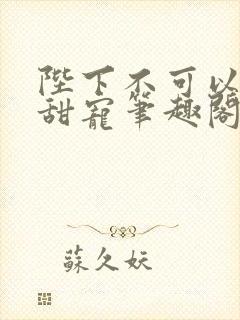 陛下不可以
甜寵筆趣閣
蘇久妖